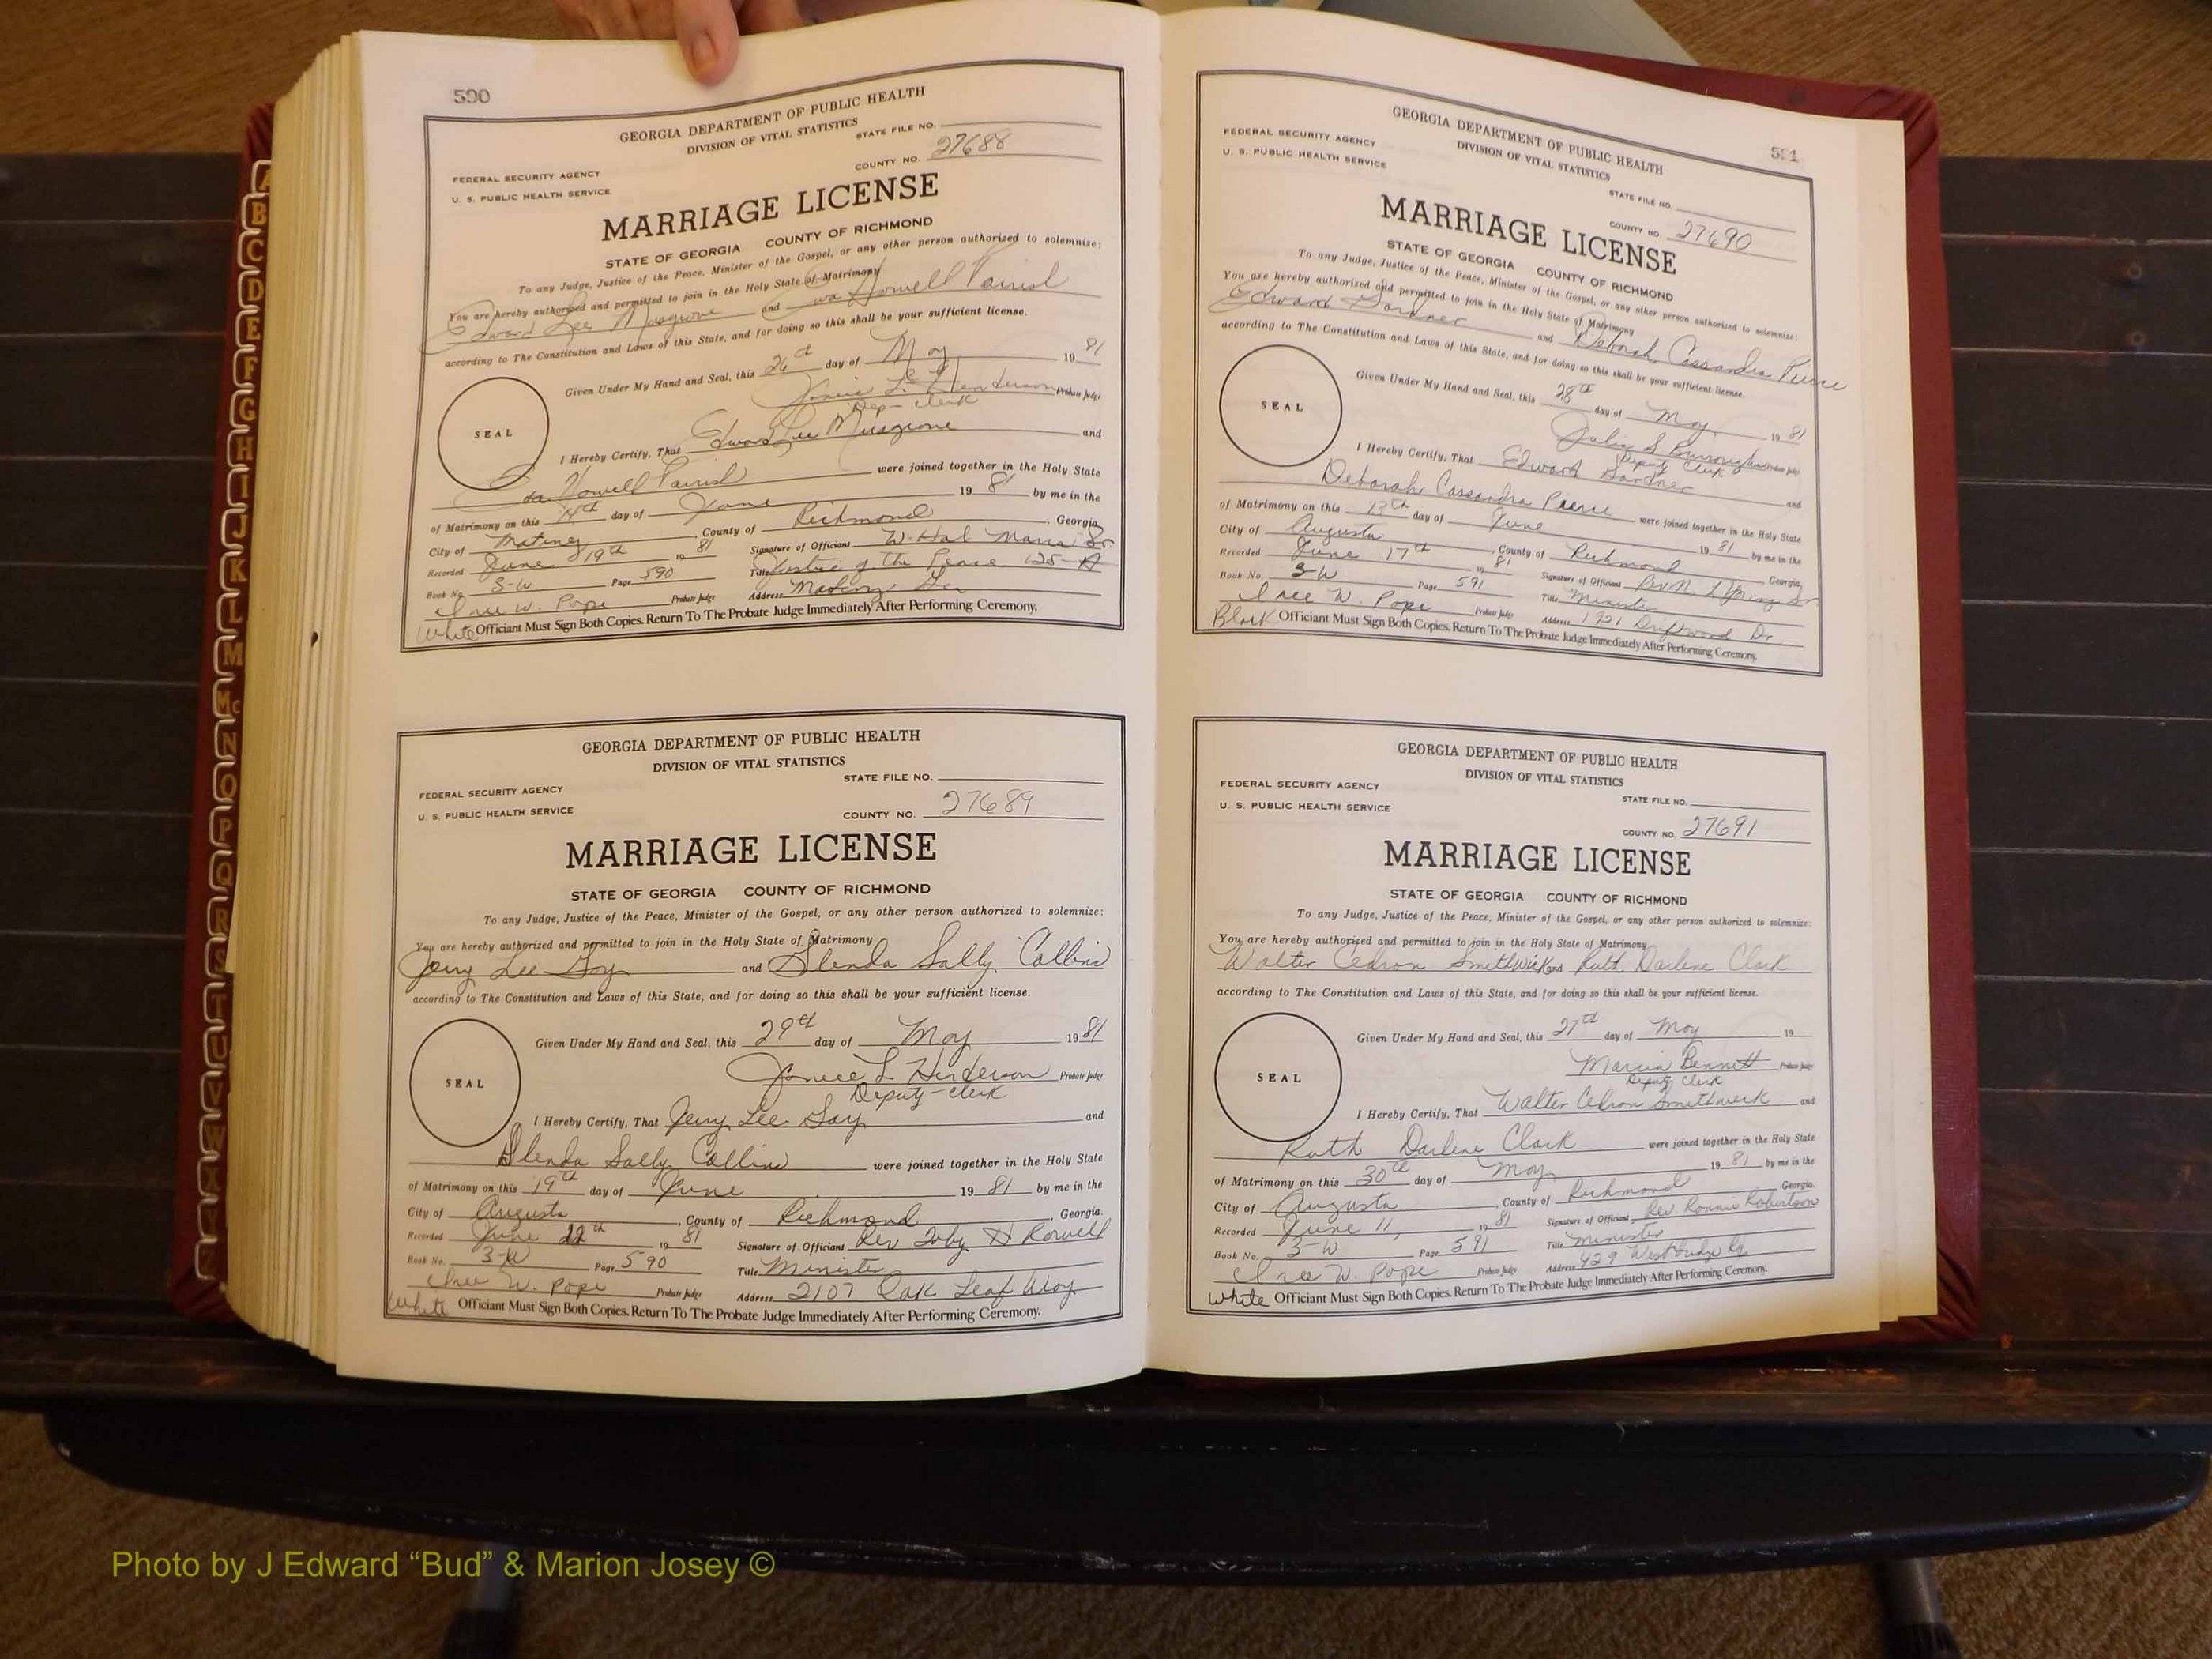 590
GEORGIA DEPARTMENT OF PUBLIC HEALTH
DIVISION OF VITAL STATISTICS
STATE FILE NO.
COUNTY NO. 27688
FEDERAL SECURITY AGENCY
U. S. PUBLIC HEALTH SERVICE
MARRIAGE LICENSE
STATE OF GEORGIA COUNTY OF RICHMOND
To any Judge, Justice of the Peace, Minister of the Gospel, or any other person authorized to solemnize:
You are hereby authorized and permitted to join in the Holy State of Matrimony
Edward Lee Musgrove and Howell Parrish
according to The Constitution and Laws of this State, and for doing so this shall be your sufficient license.
Given Under My Hand and Seal, this 26th day of May 1981
Janice L. Henderson Probate Judge
Dep- Clerk
SEAL
I Hereby Certify, That Edward Lee Musgrove and
Howell Parrish were joined together in the Holy State
of Matrimony on this 14th day of June 1981 by me in the
City of , County of Richmond, Georgia.
Recorded June 19th 1981 Signature of Officiant W. Hal Sr.
Book No. 3-W Page 590 Title Justice of the Peace 125-
W. Pope Probate Judge Address
White Officiant Must Sign Both Copies. Return To The Probate Judge Immediately After Performing Ceremony.
GEORGIA DEPARTMENT OF PUBLIC HEALTH
DIVISION OF VITAL STATISTICS
STATE FILE NO.
FEDERAL SECURITY AGENCY
U. S. PUBLIC HEALTH SERVICE
COUNTY NO. 27689
MARRIAGE LICENSE
STATE OF GEORGIA COUNTY OF RICHMOND
To any Judge, Justice of the Peace, Minister of the Gospel, or any other person authorized to solemnize:
You are hereby authorized and permitted to join in the Holy State of Matrimony
Jerry Lee Gay and Glenda Sally Collins
according to The Constitution and Laws of this State, and for doing so this shall be your sufficient license.
Given Under My Hand and Seal, this 29th day of May 1981
Janice L. Henderson Probate Judge
Deputy-Clerk
SEAL
I Hereby Certify, That Jerry Lee Gay and
Glenda Sally Collins were joined together in the Holy State
of Matrimony on this 19th day of June 1981 by me in the
City of Augusta, County of Richmond, Georgia.
Recorded June 22th 1981 Signature of Officiant Rev Toby H Rowell
Book No. 3-W Page 590 Title Minister
W. Pope Probate Judge Address 2107 Oak Leaf Way
White Officiant Must Sign Both Copies. Return To The Probate Judge Immediately After Performing Ceremony.
591
GEORGIA DEPARTMENT OF PUBLIC HEALTH
DIVISION OF VITAL STATISTICS
FEDERAL SECURITY AGENCY
U. S. PUBLIC HEALTH SERVICE
STATE FILE NO.
COUNTY NO. 27690
MARRIAGE LICENSE
STATE OF GEORGIA COUNTY OF RICHMOND
To any Judge, Justice of the Peace, Minister of the Gospel, or any other person authorized to solemnize:
You are hereby authorized and permitted to join in the Holy State of Matrimony
Edward Gardner and Deborah Cassandra Pierce
according to The Constitution and Laws of this State, and for doing so this shall be your sufficient license.
Given Under My Hand and Seal, this 28th day of May 1981
Julia S Probate Judge
Deputy Clerk
SEAL
I Hereby Certify, That Edward Gardner and
Deborah Cassandra Pierce were joined together in the Holy State
of Matrimony on this 13th day of June 1981 by me in the
City of Augusta, County of Richmond Georgia.
Recorded June 17th 1981 Signature of Officiant Rev N.
Book No. 3-W Page 591 Title Minister
W. Pope Probate Judge Address 1921 Driftwood Dr
Black Officiant Must Sign Both Copies. Return To The Probate Judge Immediately After Performing Ceremony.
GEORGIA DEPARTMENT OF PUBLIC HEALTH
DIVISION OF VITAL STATISTICS
FEDERAL SECURITY AGENCY
U. S. PUBLIC HEALTH SERVICE
STATE FILE NO.
COUNTY NO. 27691
MARRIAGE LICENSE
STATE OF GEORGIA COUNTY OF RICHMOND
To any Judge, Justice of the Peace, Minister of the Gospel, or any other person authorized to solemnize:
You are hereby authorized and permitted to join in the Holy State of Matrimony
Walter Cedron Smithwick and Ruth Darlene Clark
according to The Constitution and Laws of this State, and for doing so this shall be your sufficient license.
Given Under My Hand and Seal, this 27th day of May 19
Marcia Bennett Probate Judge
Deputy Clerk
SEAL
I Hereby Certify, That Walter Cedron Smithwick and
Ruth Darlene Clark were joined together in the Holy State
of Matrimony on this 30th day of May 1981 by me in the
City of Augusta, County of Richmond Georgia.
Recorded June 11, 1981 Signature of Officiant Rev. Ronnie Robertson
Book No. 3-W Page 591 Title Minister
W. Pope Probate Judge Address 429
White Officiant Must Sign Both Copies. Return To The Probate Judge Immediately After Performing Ceremony.
A
B
C
D
E
F
G
H
I
J
K
L
M
Mc
N
O
P
Q
R
S
T
U
V
W
X
Photo by J Edward “Bud” & Marion Josey ©